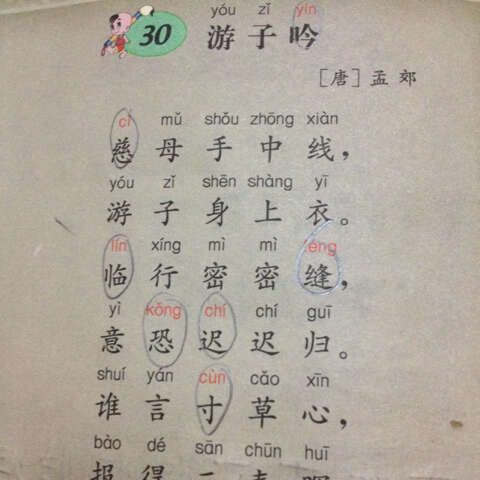 yóu zǐ yín
30 游子吟
[唐] 孟郊
cí mǔ shǒu zhōng xiàn
慈母手中线，
yóu zǐ shēn shàng yī
游子身上衣。
lín xíng mì mì féng
临行密密缝，
yì kǒng chí chí guī
意恐迟迟归。
shuí yán cùn cǎo xīn
谁言寸草心，
bào dé sān chūn huī
报得三春晖